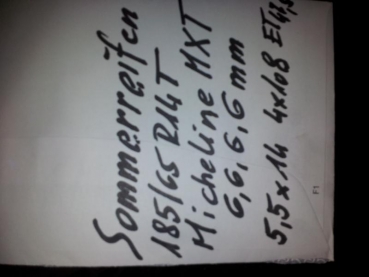 Sommerreifen
185/65 R14T
Micheline MXT
6,6,6,6 mm
5,5x14 4x108 ET47,5
F1